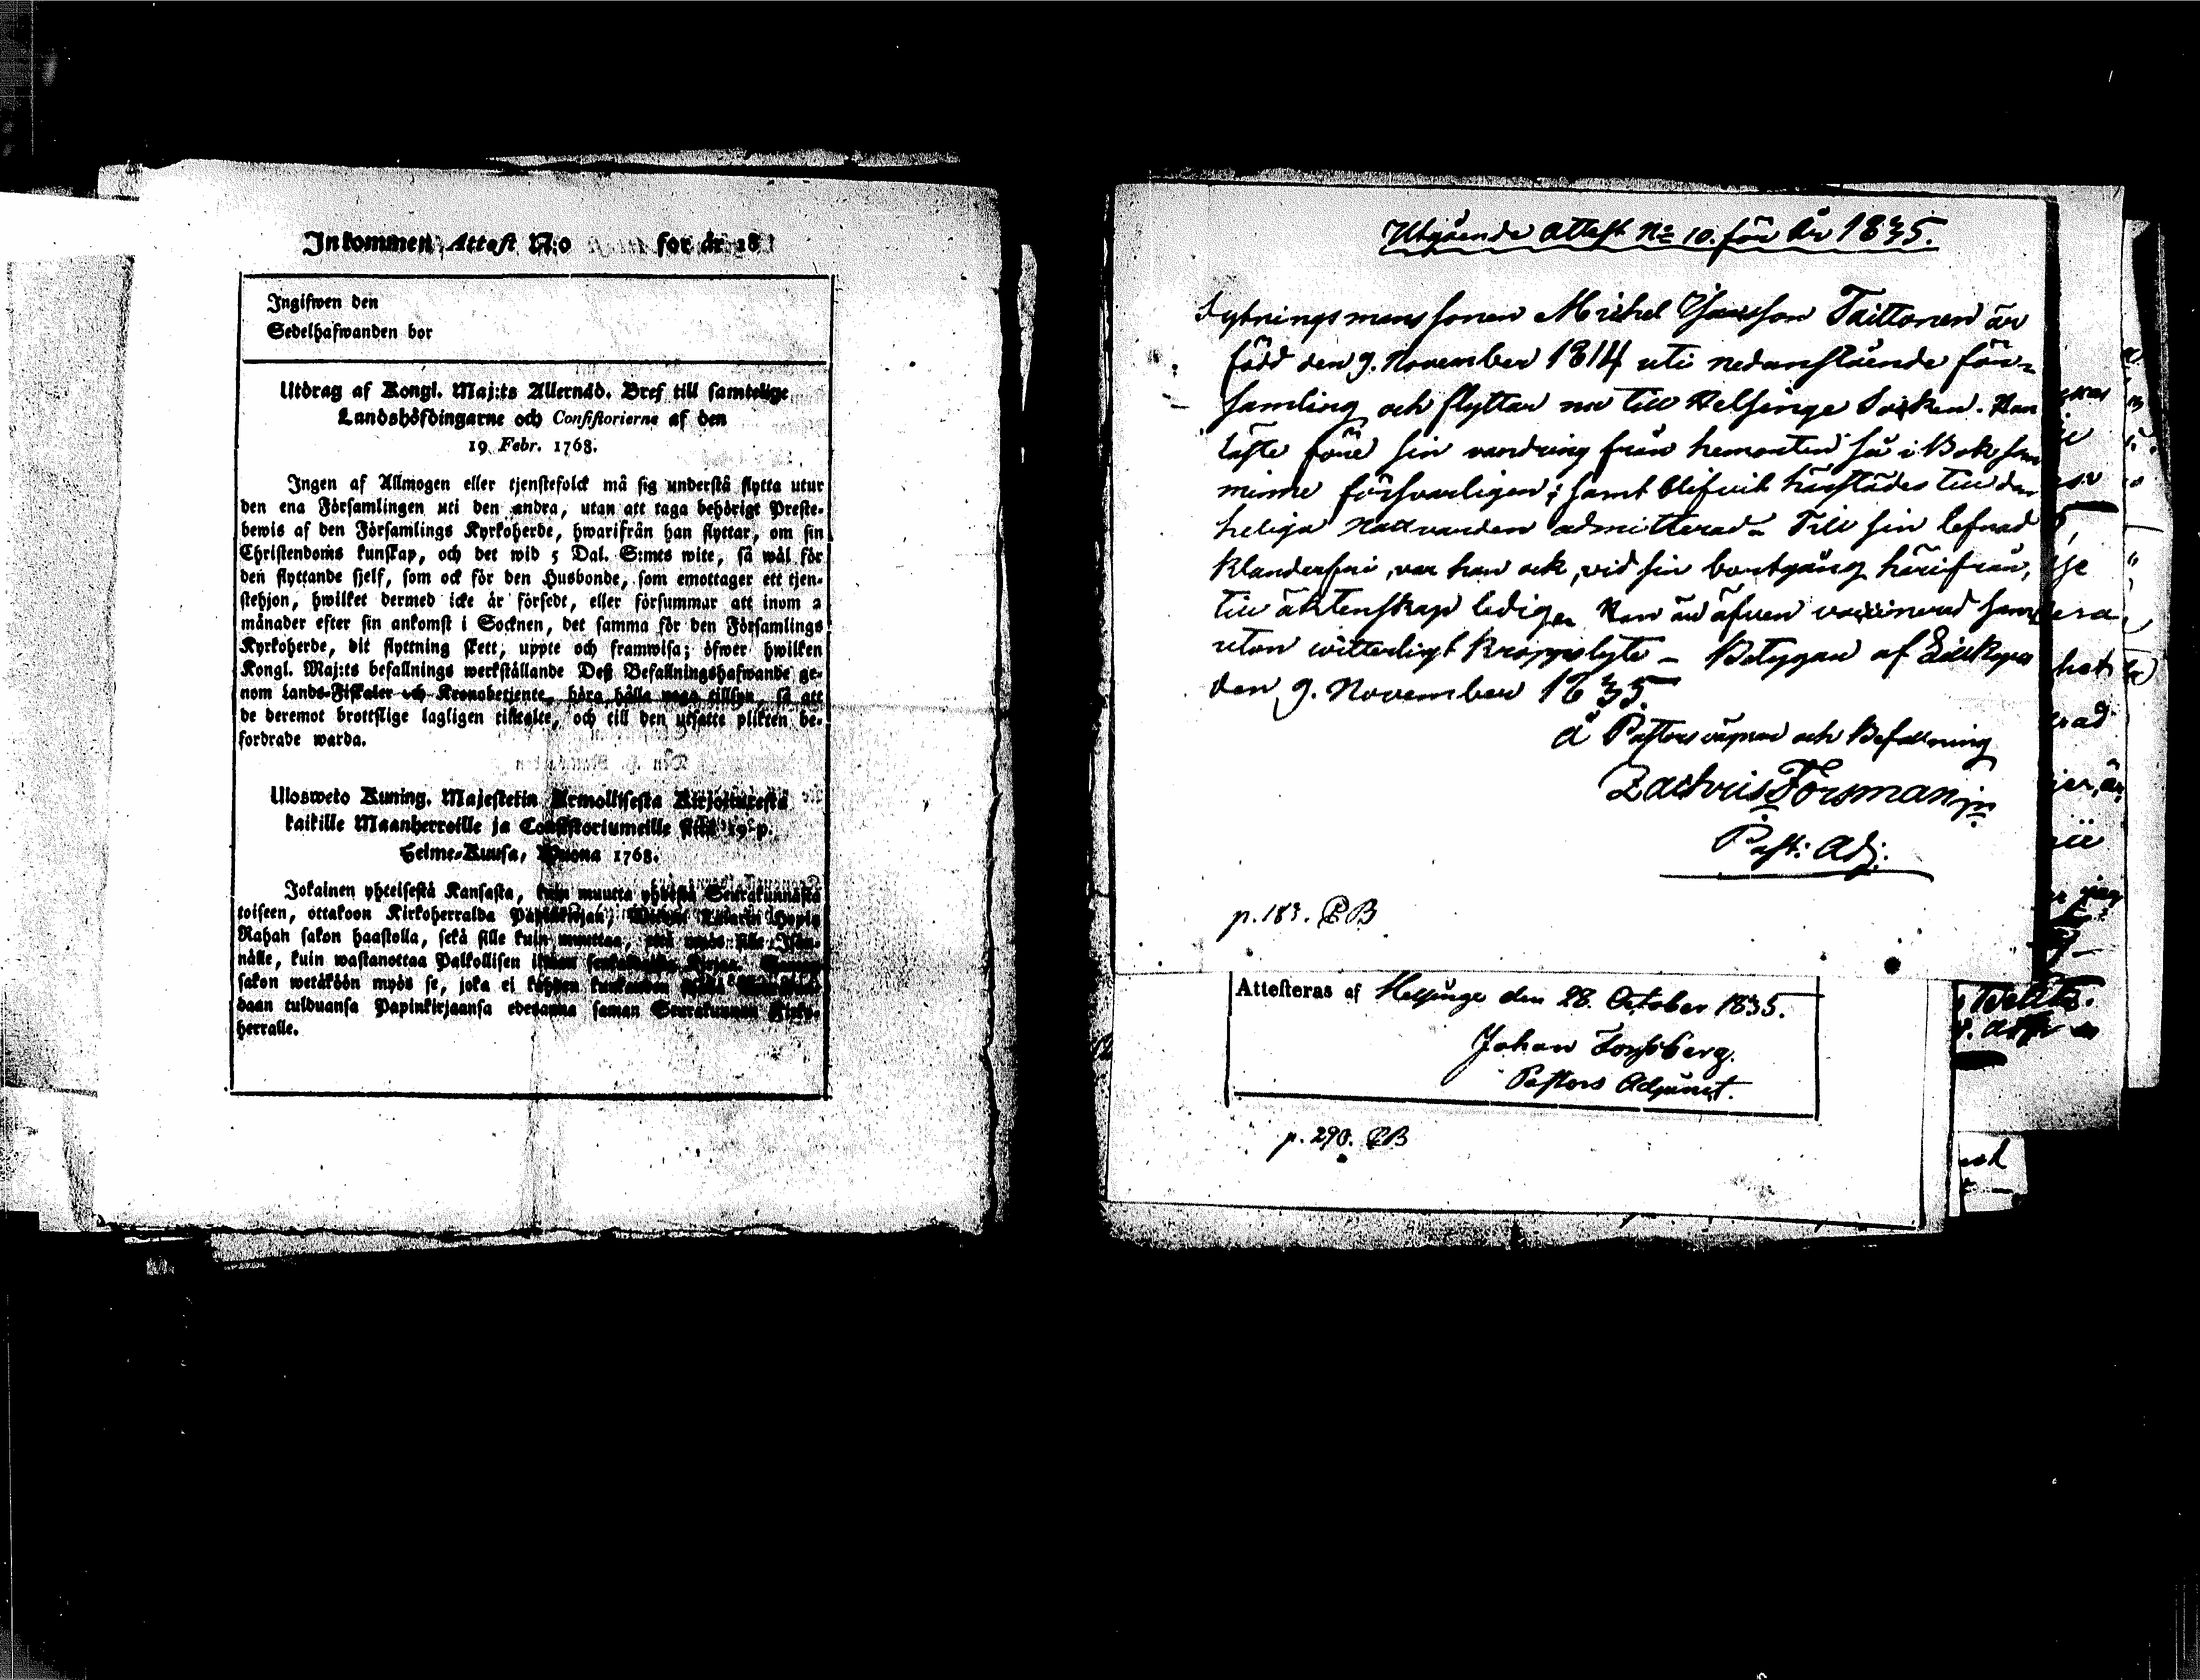 Inkommen Attest N:o for år 18
Ingifwen den
Sedelhafwanden bor
Utdrag af Kongl. Maj:ts Allernåd. Bref till samtelige
Landshöfdingarne och Consistorierne af den
19 Febr. 1768.
Ingen af Allmogen eller tjenstefolck må sig understå flytta utur
den ena Församlingen uti den andra, utan att taga behörigt Preste-
bewis af den Församlings Kyrkoherde, hwarifrån han flyttar, om sin
Christendoms kunskap, och det wid 5 Dal. S:mts wite, så wäl för
den flyttande sjelf, som ock för den Husbonde, som emottager ett tjen-
stehjon, hwilket dermed icke är försedt, eller försummar att inom 2
månader efter sin ankomst i Socknen, det samma för den Församlings
Kyrkoherde, dit flyttning skett, uppte och framwisa; öfwer hwilken
Kongl. Maj:ts befallnings werkställande Deß Befallningshafwande ge-
nom Lands-Fiskaler och Kronobetjente böra hålla noga tillsyn, så att
de deremot brottslige lagligen tilltalte, och till den utsatte plikten be-
fordrade warda.
Ulosweto Kuning. Majestetin Armollisesta Kirjoituxesta
kaikille Maanherroille ja Consistoriumeille siitä 19 p.
Helme-Kuusa, Wuona 1768.
Jokainen yhteisestä Kansasta, kuin muutta yhdestä Seurakunnasta
toiseen, ottakoon Kirkoherralda Papinkirjan,
Rahan sakon haastolla, sekä sille kuin muuttaa, että myös sille Isän-
nälle, kuin wastanottaa Palkollisen ilman
sakon wetäköön myös se, joka ei kahden kuukauden
daan tulduansa Papinkirjaansa edesanna saman Seurakunnan Kirko-
herralle.
Utgående attest No 10. för År 1835.
Sytningsmanssonen Michel Johansson Taittonen är
född den 9. November 1814 uti nedanstående för-
samling och flyttar nu till Helsinge Socken. Han
läste före sin vandring från hemorten så i Bok som
minne försvarligen; samt blifvit härstädes till den
heliga nattvarden admitterad. Till sin lefnad
klanderfri, var han ock, vid sin bortgång härifrån,
till äktenskap ledig. Han är äfven vaccinerad samt
utan witterligt kroppslyte – Betygar af
den 9. November 1835.
å Pastors vägnar och Befallning
Zachris Forsman jr
Past: Adj.
p. 183. CB
Attesteras af Helsinge den 28. October 1835.
Johan Forssberg.
Pastors Adjunct.
p. 290. CB